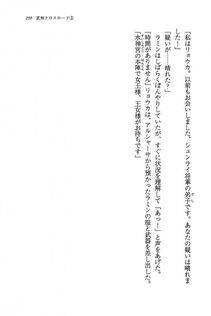 299　武神クロスロード②
「私はリョウカ。以前もお会いしました、シュンライ将軍の弟子です。あなたの疑いは晴れま
した！」
「疑いが……晴れた？」
ラミンはしばらくぽんやりしていたが、すぐに状況を理解して「あっ！」と声をあげた。
「時間がありません」リョウカは、アルシャーサから預かったラミンの服と武器を差し出した。
「水神宮の本陣で女王様、王女様がお待ちです」